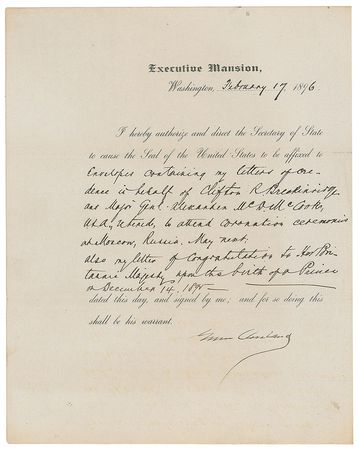 Executive Mansion,
Washington, February 17, 1896.
I hereby authorize and direct the Secretary of State
to cause the Seal of the United States to be affixed to
Envelopes containing my letters of cre-
dence in behalf of Clifton R. Breckinridge
and Major Genl. Alexander McD. McCook,
U.S.A., to attend coronation ceremonies
at Moscow, Russia, May next;
also my letter of Congratulation to Her Bri-
tannic Majesty upon the birth of a Prince
on December 14, 1895
dated this day, and signed by me; and for so doing this
shall be his warrant.
Grover Cleveland